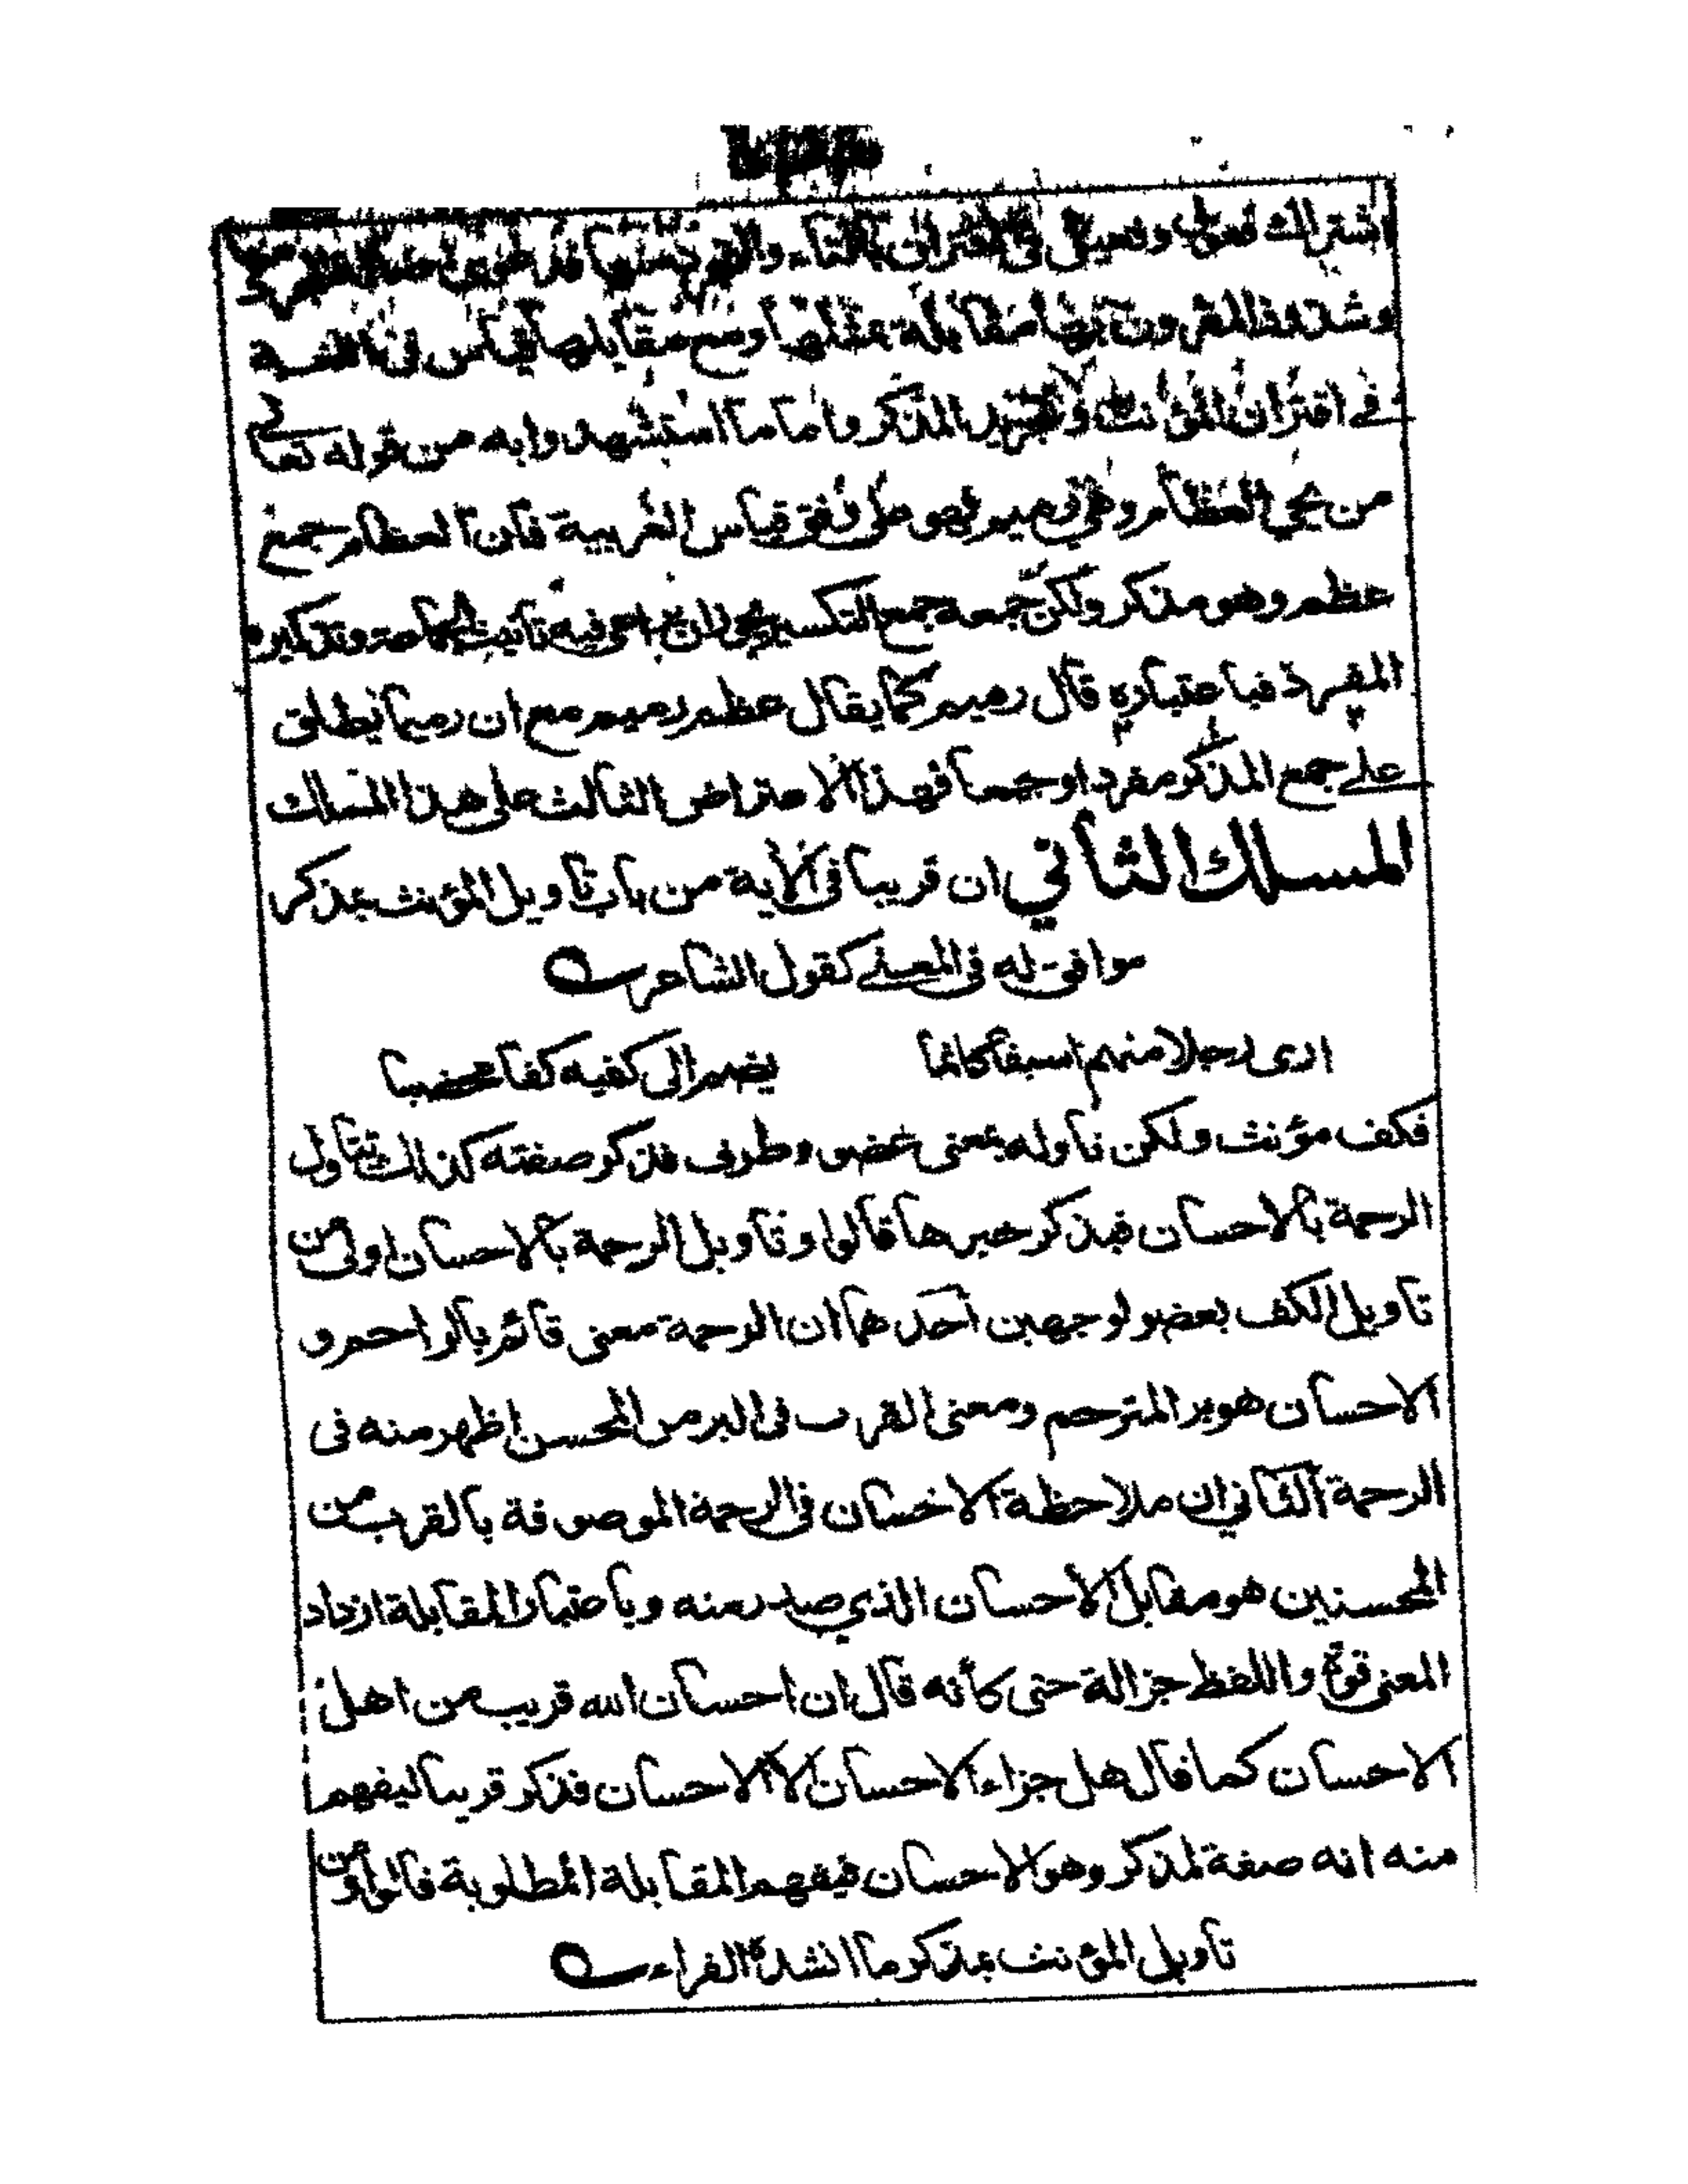 اشتراك فعول وفعيل في الاقتران بالتاء والتجرد منها
وشذوذ المقرون بها مقابلة بمثلها ومع مقابلها قياس في
في اقتران المؤنث وتجريد المذكر واما ما استشهدوا به من قوله تعالى
من يحي العظام وهي رميم فهو على وفق قياس العربية فان العظام جمع
عظم وهو مذكر ولكن جمعه جمع التكسير يجوز ان يراعى فيه تانيث الجماعة وتذكيره
المفرد فباعتباره قال رميم كما يقال عظم رميم مع ان رميما يطلق
على جمع المذكر مفردا وجمعا فهذا الاعتراض الثالث على هذا المسلك
المسلك الثاني ان قريبا في الآية من باب تاويل المؤنث بمذكر
موافق له في المعنى كقول الشاعر
ارى رجلا منهم اسيفا كانما يضم الى كفيه كفا مخضبا
فكف مؤنث ولكن تاوله بمعنى عضو وطرف فذكر صفته كذلك تتاول
الرحمة بالاحسان فيذكر خبرها قالوا وتاويل الرحمة بالاحسان اولى من
تاويل الكف بعضو لوجهين احدهما ان الرحمة معنى قائم بالراحم و
الاحسان هو بر المترحم ومعنى القرب في البر من المحسن اظهر منه في
الرحمة الثاني ان ملاحظة الاحسان في الرحمة الموصوفة بالقرب من
المحسنين هو مقابل الاحسان الذي صدر منه وباعتبار المقابلة ازداد
المعنى قوة واللفظ جزالة حتى كأنه قال ان احسان الله قريب من اهل
الاحسان كما قال هل جزاء الاحسان الا الاحسان فذكر قريبا ليفهم
منه انه صفة لمذكر وهو الاحسان فيفهم المقابلة المطلوبة قالوا ومن
تاويل المؤنث بمذكر ما انشده الفراء